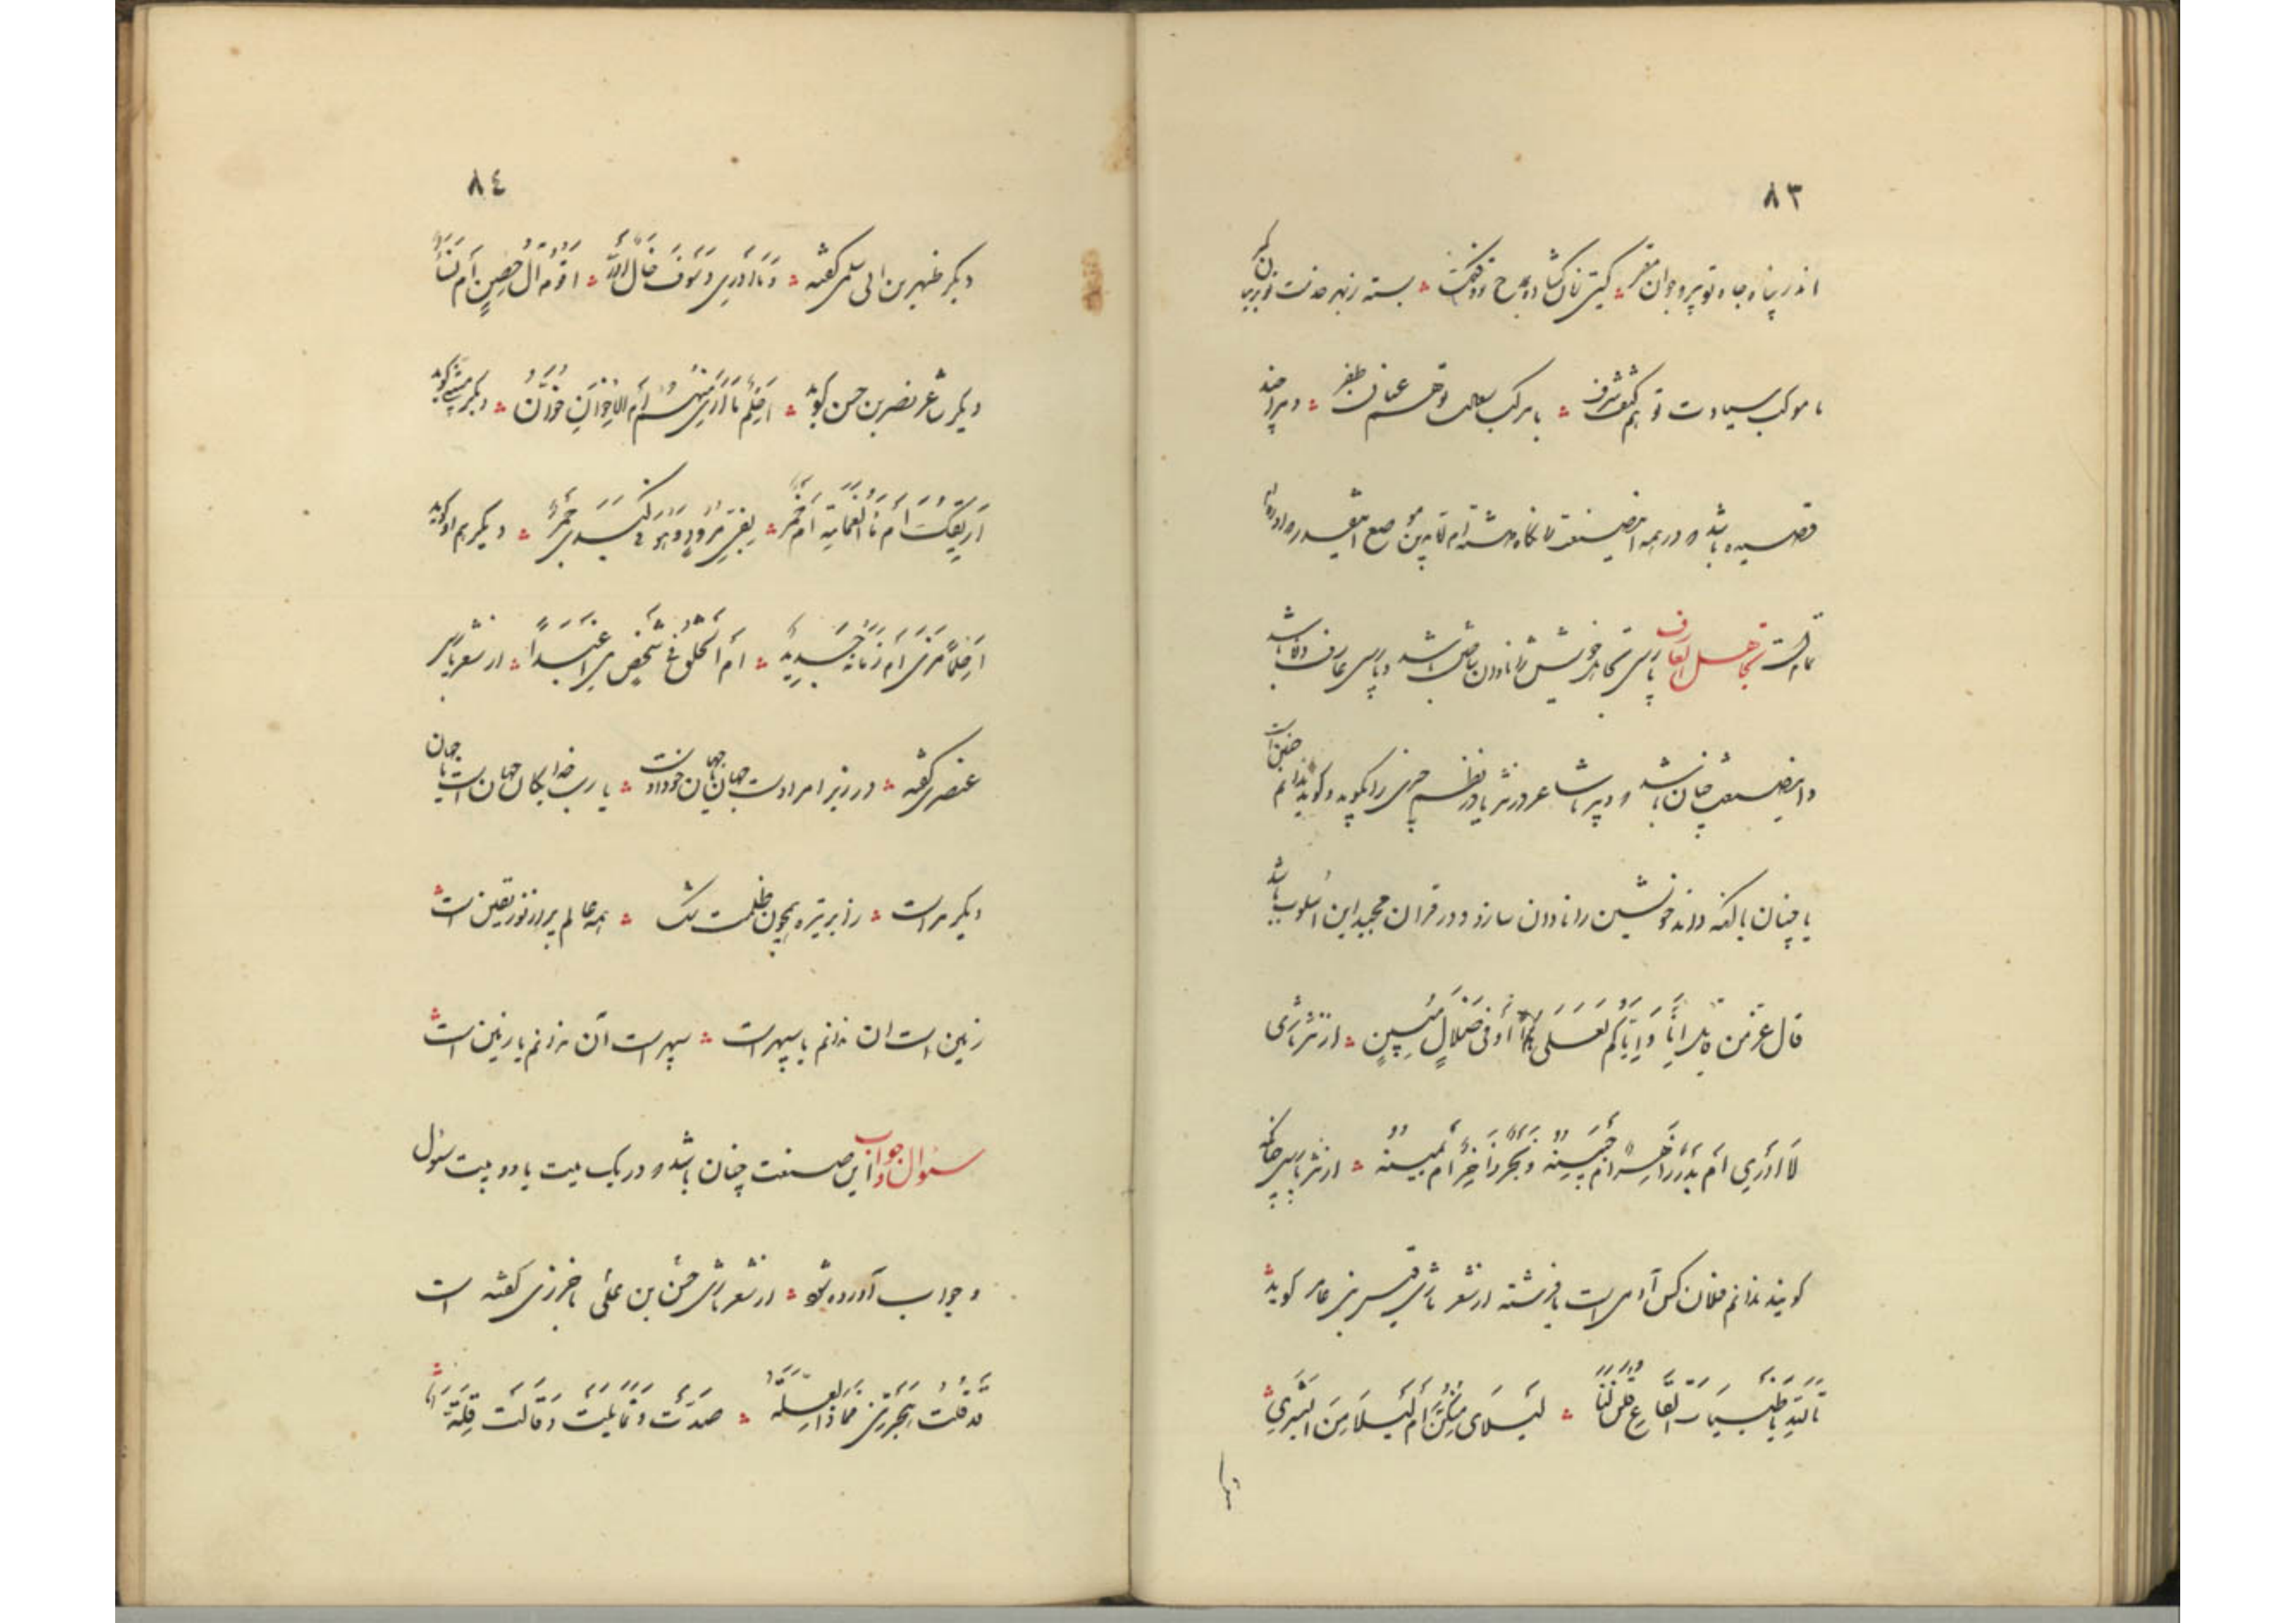 ٨٣
اندر پناه جاه تو پیر و جوان مقر کیتی زبان کشاده بمدح تو بسته ز بهر خدمت تو بر میان کمر
با موکب سیادت تو هم کتف شرف با مرکب سعادت تو هم عنان ظفر و هر چند
قصیده باشد و در همه این صنعت نگاه داشته ام تا بدین موضع این قدر آورده ام
تمام است تجاهل العارف پارسی تجاهل خویشتن را نادان ساختن باشد و پارسی عارف دانا باشد
و این صنعت چنان باشد و دبیر یا شاعر در نثر یا در نظم چیزی را بگوید و گوید ندانم چنین است
یا چنان با آنکه داند خویشتن را نادان سازد و در قران مجید این اسلوب باشد
قال عز من قائل إنا و إیاکم لعلی أو فی ضلال مبین از نثر تازی
لا أدری أم بدر زاخر أم از نثر پارسی چنانکه
کویند ندانم فلان کس آدمی است یا فرشته از شعر تازی قیس بن عامر کوید
تالله یا ظبیات القاع قلن لنا لیلای منکن أم لیلی من البشر
٨٤
دیکر ظهیر بن ابی سلمی کفته و ما أدری و سوف خال أدری اقوم آل حصن أم نساء
دیکر شاعر نصر بن حسن کوید أ حلم ما أری منهم أم الإخوان خوان دیکر متنبی کوید
أریقک أم ماء الغمامة أم خمر بفی برود و هو فی کبدی جمر دیکر هم او کوید
أ حلما نری أم زمانا جدیدا أم الخلق فی شخص حی أعیدا از شعر پارسی
عنصری کفته در زیر امر اوست جهان و جهان خود اوست یا رب خدایکان جهان است یا جهان
دیکر مراست رأ بر تیره همچون ظلمت شک همه عالم بر از نور یقین است
زمین است ان ندانم یا سپهر است سپهر است آن ندانم یا زمین است
سئوال و جواب این صنعت چنان باشد و در یک بیت یا دو بیت سئول
و جواب آورده شود از شعر تازی حسن بن علی باخرزی کفته است
قد قلت هجرتنی فماذا العله صدت و تمایلت و قالت قله